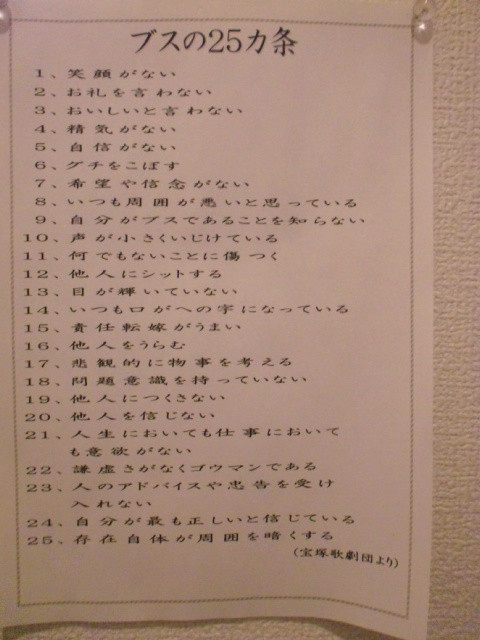 ブスの25カ条
1、笑顔がない
2、お礼を言わない
3、おいしいと言わない
4、精気がない
5、自信がない
6、グチをこぼす
7、希望や信念がない
8、いつも周囲が悪いと思っている
9、自分がブスであることを知らない
10、声が小さくいじけている
11、何でもないことに傷つく
12、他人にシットする
13、目が輝いていない
14、いつも口がへの字になっている
15、責任転嫁がうまい
16、他人をうらむ
17、悲観的に物事を考える
18、問題意識を持っていない
19、他人につくさない
20、他人を信じない
21、人生においても仕事において
も意欲がない
22、謙虚さがなくゴウマンである
23、人のアドバイスや忠告を受け
入れない
24、自分が最も正しいと信じている
25、存在自体が周囲を暗くする
(宝塚歌劇団より)